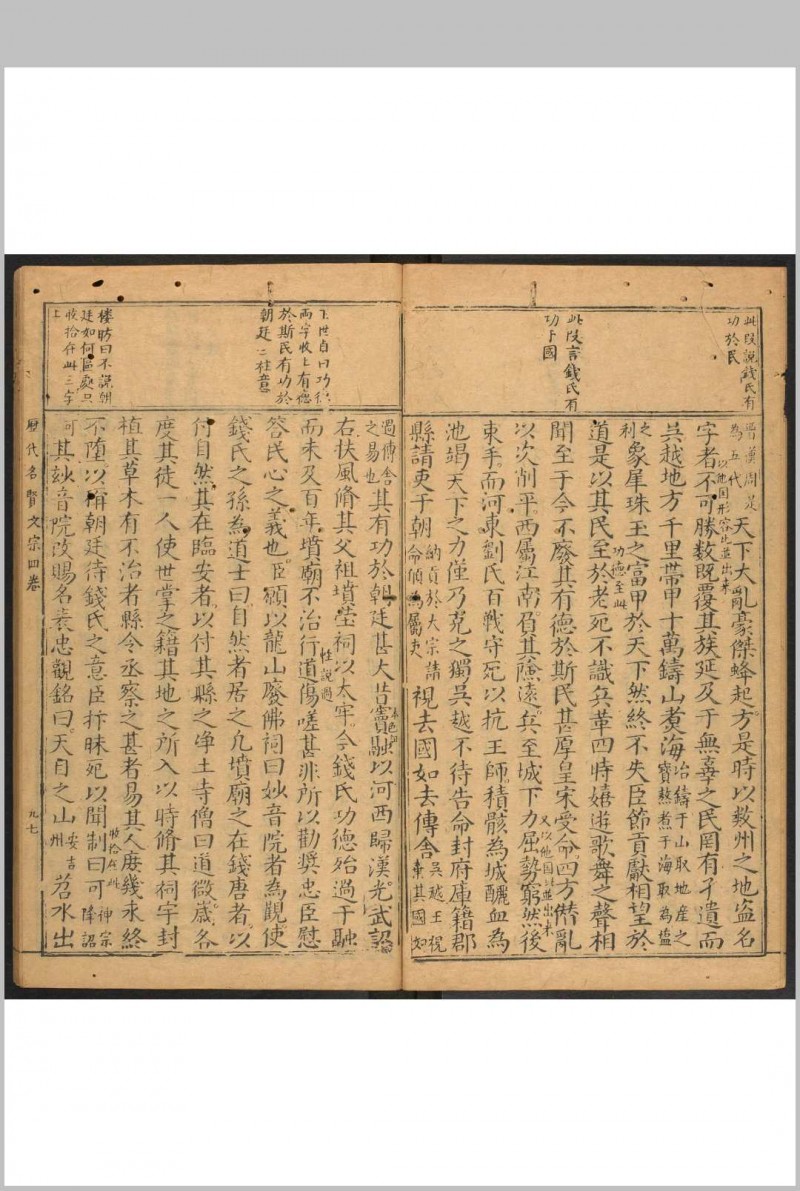 此段說錢氏有
功於民
此段言錢氏有
功于國
晋漢周是
為五代
天下大亂豪傑蜂起方是時以數州之地盗名
字者不可勝数既覆其族延及于無辜之民罔有孑遺而
以他国形容比並出来
吳越地方千里帯甲十萬鑄山煮海
冶鑄于山取地産之
寳熬煮于海取為塩
之
利
象犀珠玉之富甲於天下然終不失臣節貢獻相望於
道是以其民至於老死不識兵革四時嬉遊歌舞之聲相
功德至此
聞至于今不廢其有德於斯民甚厚皇宋受命四方僣亂
以次削平西屬江南負其險遠兵至城下力屈勢窮然後
又以他国比並出来
束手而河東劉氏百戦守死以抗王師積骸為城釃血為
池竭天下之力僅乃克之獨吳越不待告命封府庫籍郡
縣請吏于朝
納貢於大宗請
命願為屬吏
視去國如去傳舍
吳越王視
棄其國如
上世自曰功德
两字收上有德
於斯民有功於
朝廷二柱意
樓昉曰不說朝
廷如何區處只
收拾在此三字
上
過傳舍
之易也
其有功於朝廷甚大昔竇融以河西歸漢光武詔
右扶風脩其父祖墳塋祠以太牢今錢氏功德殆過于融
而未及百年墳廟不治行道傷嗟甚非所以勸奨忠臣慰
荅民心之義也臣願以龍山廢佛祠曰妙音院者為觀使
錢氏之孫為道士曰自然者居之凡墳廟之在錢唐者以
付自然其在臨安者以付其縣之净土寺僧曰道微歲各
度其徒一人使世掌之籍其地之所入以時脩其祠宇封
植其草木有不治者縣令丞察之甚者易其人庶幾永終
不墮以稱朝廷待錢氏之意臣抃昧死以聞制曰可
收拾在此
神宗
降詔
可其妙音院改賜名表忠觀銘曰天目之山
安吉
州
苕水出
歷代名賢文宗四卷
九七